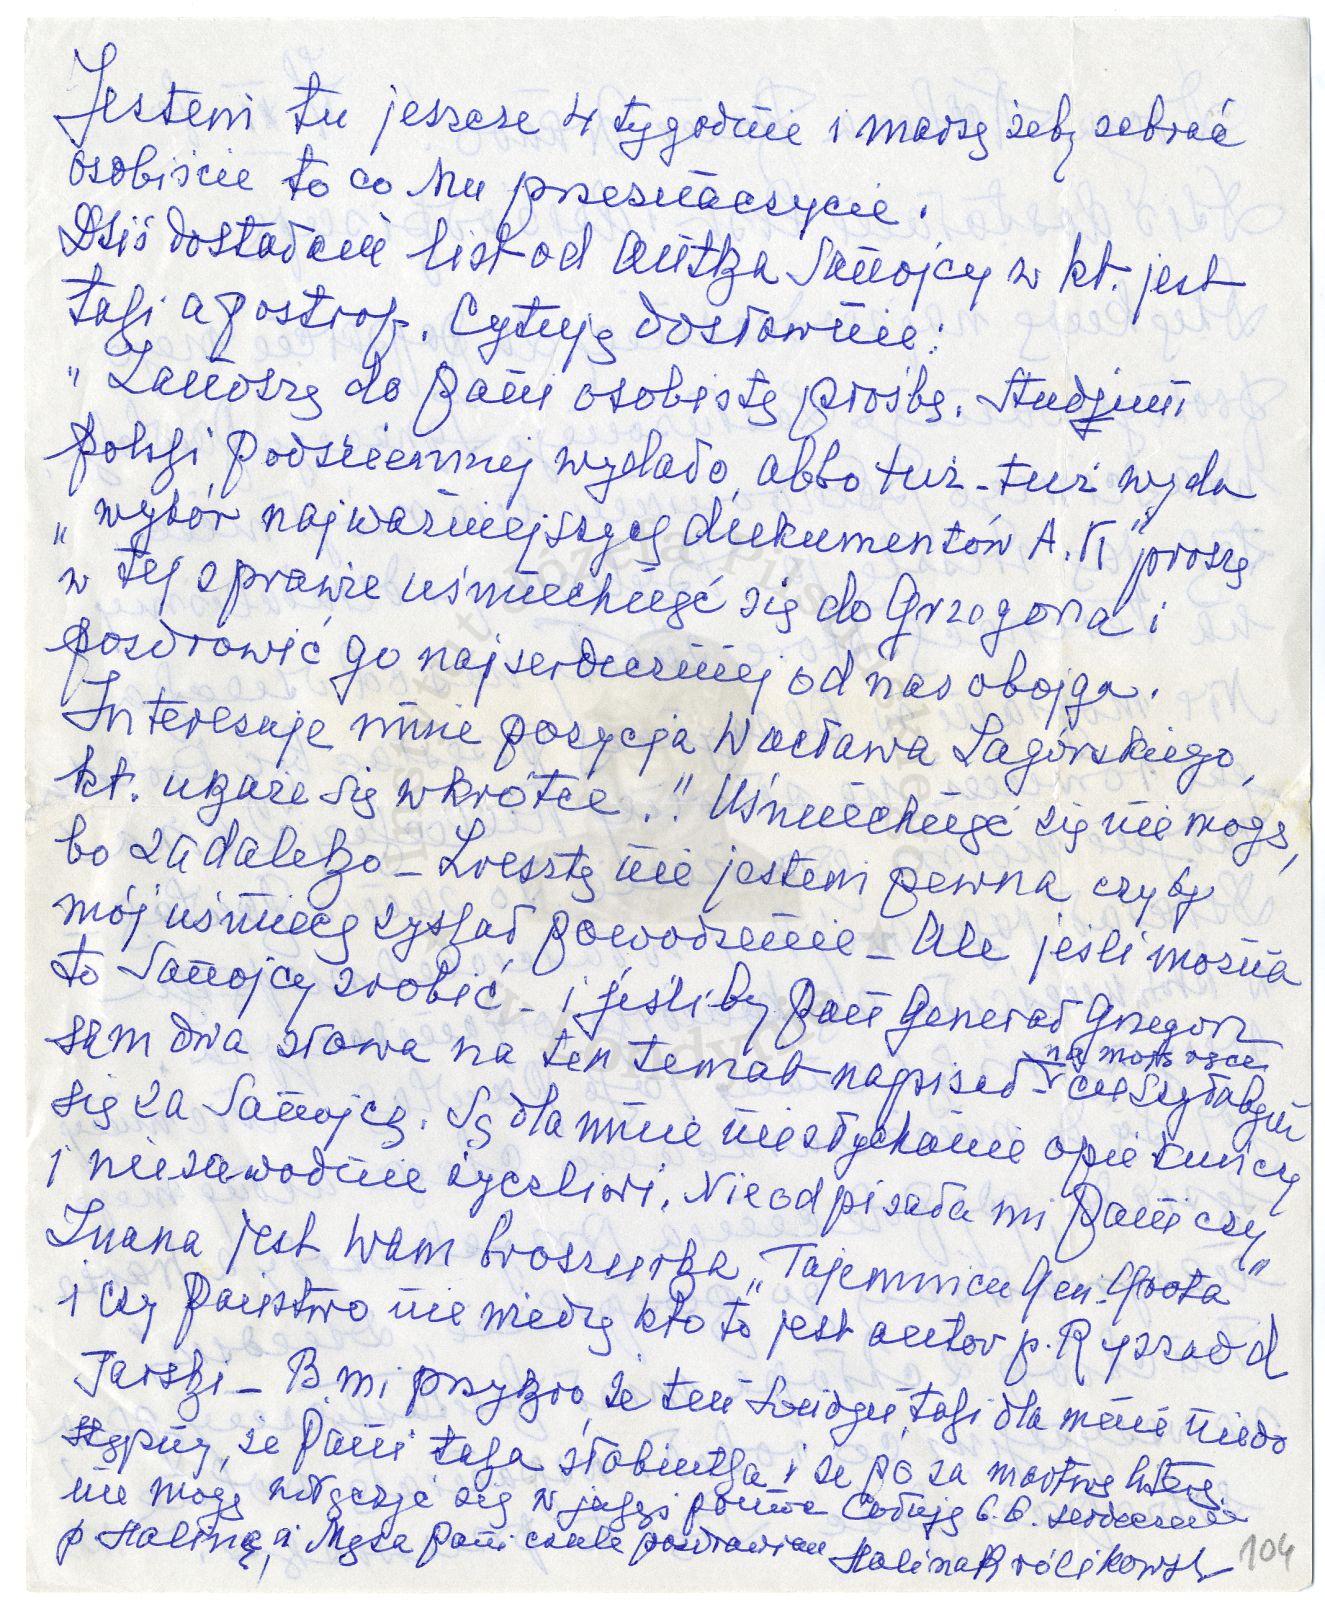 Jestem tu jeszcze 4 tygodnie i marzę żeby zebrać
osobiście to co Mu przeznaczycie.
Dziś dostałam list od Antka Sanojcy w kt. jest
taki apostrof. Cytuję dosłownie:
„Zanoszę do Pani osobistą prośbę. Studjum
Polski Podziemnej wydało, albo tuż-tuż wyda
„wybór najważniejszych dokumentów A.K" proszę
w tej sprawie uśmiechnąć się do Grzegorza i
pozdrowić go najserdeczniej od nas obojga.
Interesuje mnie pozycja Wacława Zagórskiego,
kt. ukaże się wkrótce." Uśmiechnąć się nie mogę,
bo za daleko - Zresztą nie jestem pewna czy by
mój uśmiech zyskał powodzenie - Ale jeśli można
to Sanojcy zrobić - i jeśliby Pan Generał Grzegorz
sam dwa słowa na ten temat napisał na moje ręce - cieszyłabym
się za Sanojcę. Są dla mnie niesłychanie opiekuńczy
i niezawodnie życzliwi. Nie odpisała mi Pani czy
Znana jest Wam broszurka „Tajemnica Gen. Grota"
i czy Państwo nie wiedzą kto to jest autor p. Ryszard
Tarski - B. mi przykro, że ten Londyn taki dla mnie niedo
stępny, że Pani taka słabiutka i że poza martwą literą
nie mogę włączyć się w jakąś pomoc Całuję b. b. serdecznie
p Halinę, i Męża Pani czule pozdrawiam Halina Królikowska
104
Instytut Józefa Piłsudskiego
w Londynie